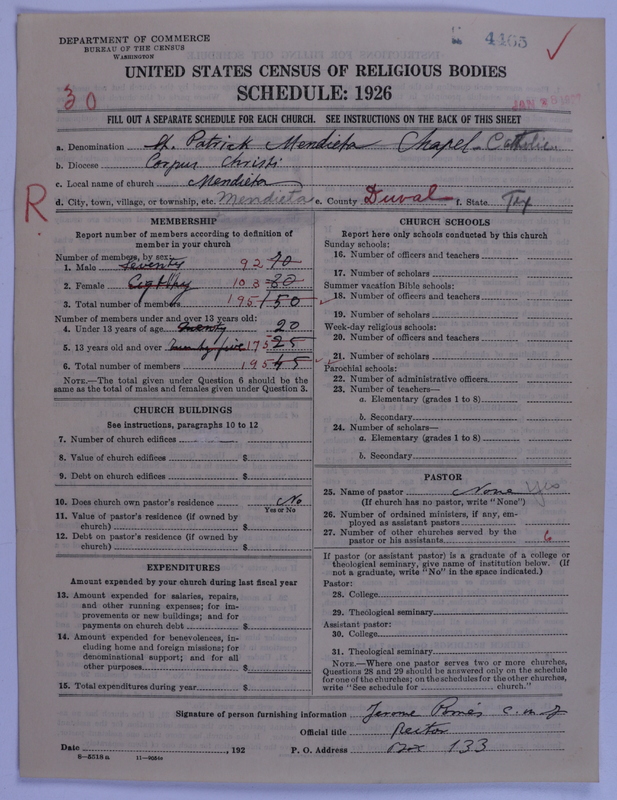 DEPARTMENT OF COMMERCE
BUREAU OF THE CENSUS
WASHINGTON
4465
UNITED STATES CENSUS OF RELIGIOUS BODIES
SCHEDULE: 1926
30
JAN 26 1927
FILL OUT A SEPARATE SCHEDULE FOR EACH CHURCH. SEE INSTRUCTIONS ON THE BACK OF THIS SHEET
a. Denomination St. Patrick Mendieta Chapel - Catholic
b. Diocese Corpus Christi
c. Local name of church Mendieta
R
d. City, town, village, or township, etc. Mendieta e. County Duval f. State Tex
MEMBERSHIP
Report number of members according to definition of
member in your church
Number of members, by sex:
1. Male seventy 92 70
2. Female Eighty 103 80
3. Total number of members 195 150
Number of members under and over 13 years old:
4. Under 13 years of age twenty 20
5. 13 years old and over twenty five 175 25
6. Total number of members 195 45
NOTE.—The total given under Question 6 should be the
same as the total of males and females given under Question 3.
CHURCH BUILDINGS
See instructions, paragraphs 10 to 12
7. Number of church edifices
8. Value of church edifices $
9. Debt on church edifices $
10. Does church own pastor's residence No
Yes or No
11. Value of pastor's residence (if owned by
church) $
12. Debt on pastor's residence (if owned by
church) $
EXPENDITURES
Amount expended by your church during last fiscal year
13. Amount expended for salaries, repairs,
and other running expenses; for im-
provements or new buildings; and for
payments on church debt $
14. Amount expended for benevolences, in-
cluding home and foreign missions; for
denominational support; and for all
other purposes $
15. Total expenditures during year $
CHURCH SCHOOLS
Report here only schools conducted by this church
Sunday schools:
16. Number of officers and teachers
17. Number of scholars
Summer vacation Bible schools:
18. Number of officers and teachers
19. Number of scholars
Week-day religious schools:
20. Number of officers and teachers
21. Number of scholars
Parochial schools:
22. Number of administrative officers
23. Number of teachers—
a. Elementary (grades 1 to 8)
b. Secondary
24. Number of scholars—
a. Elementary (grades 1 to 8)
b. Secondary
PASTOR
25. Name of pastor None Yes
(If church has no pastor, write "None")
26. Number of ordained ministers, if any, em-
ployed as assistant pastors
27. Number of other churches served by the
pastor or his assistants 6
If pastor (or assistant pastor) is a graduate of a college or
theological seminary, give name of institution below. (If
not a graduate, write "No" in the space indicated.)
Pastor:
28. College
29. Theological seminary
Assistant pastor:
30. College
31. Theological seminary
NOTE.—Where one pastor serves two or more churches,
Questions 28 and 29 should be answered only on the schedule
for one of the churches; on the schedules for the other churches,
write "See schedule for church."
Signature of person furnishing information Jerome
Official title Rector
Date , 192 P. O. Address Box 133
8—5518a